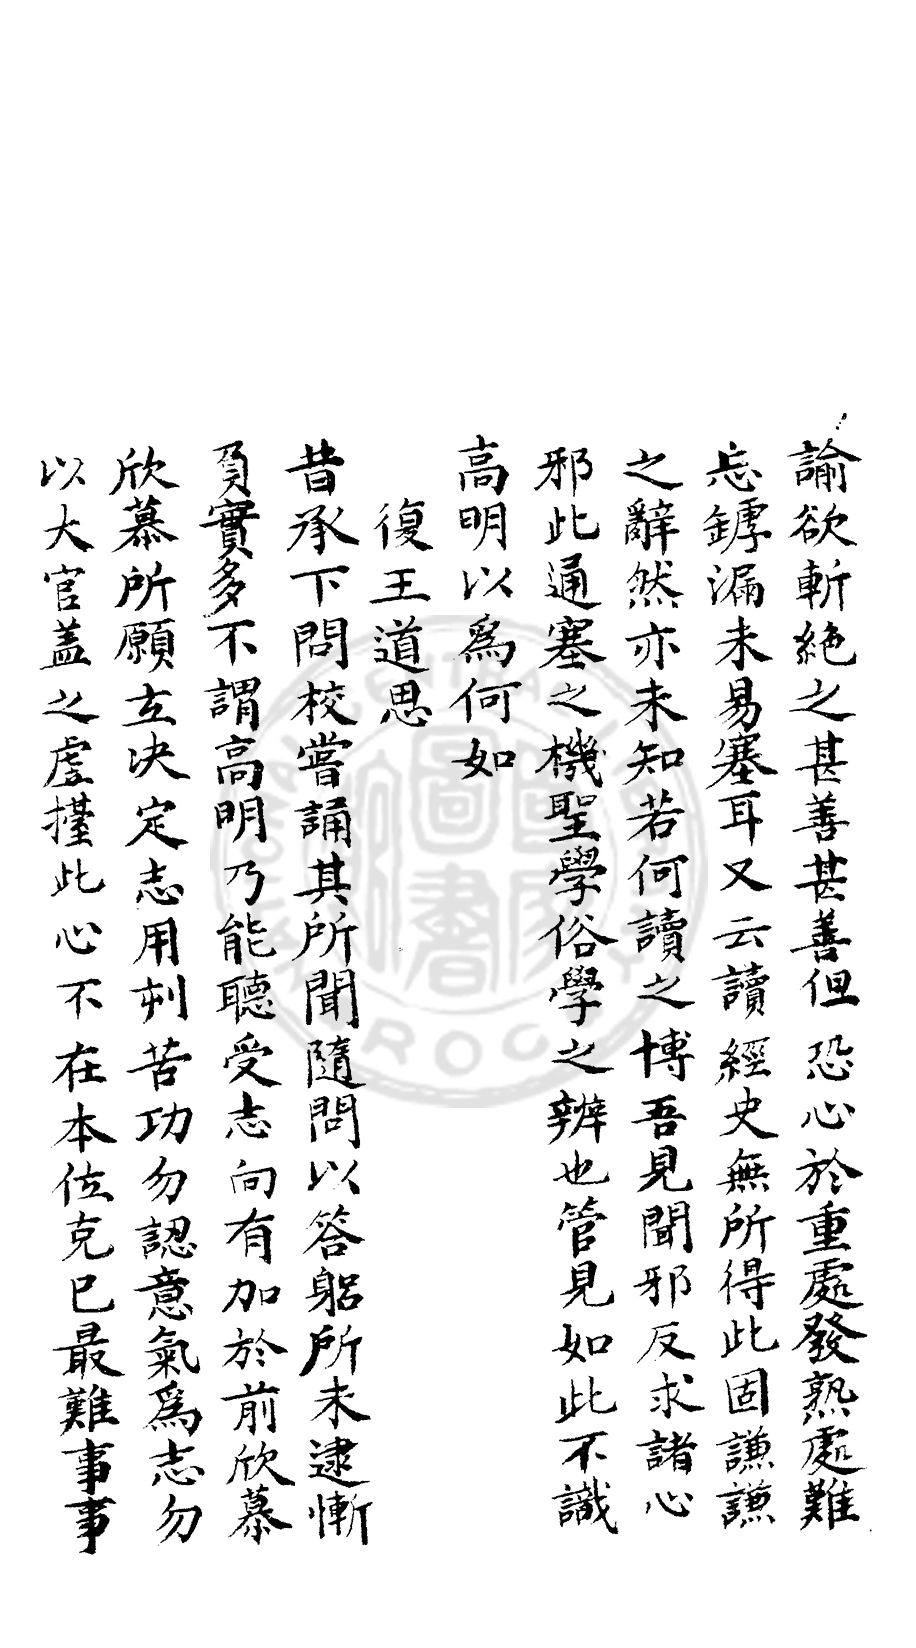 諭欲斬絶之甚善甚善但恐心於重處發熟處難
忘鏬漏未易塞耳又云讀經史無所得此固謙謙
之辭然亦未知若何讀之博吾見聞邪反求諸心
邪此通塞之機聖學俗學之辨也管見如此不識
高明以爲何如
復王道思
昔承下問校嘗誦其所聞隨問以答躬所未逮慚
負實多不謂高明乃能聽受志向有加於前欣慕
欣慕所願立决定志用刺苦功勿認意氣爲志勿
以大官蓋之虚擡此心不在本位克已最難事事